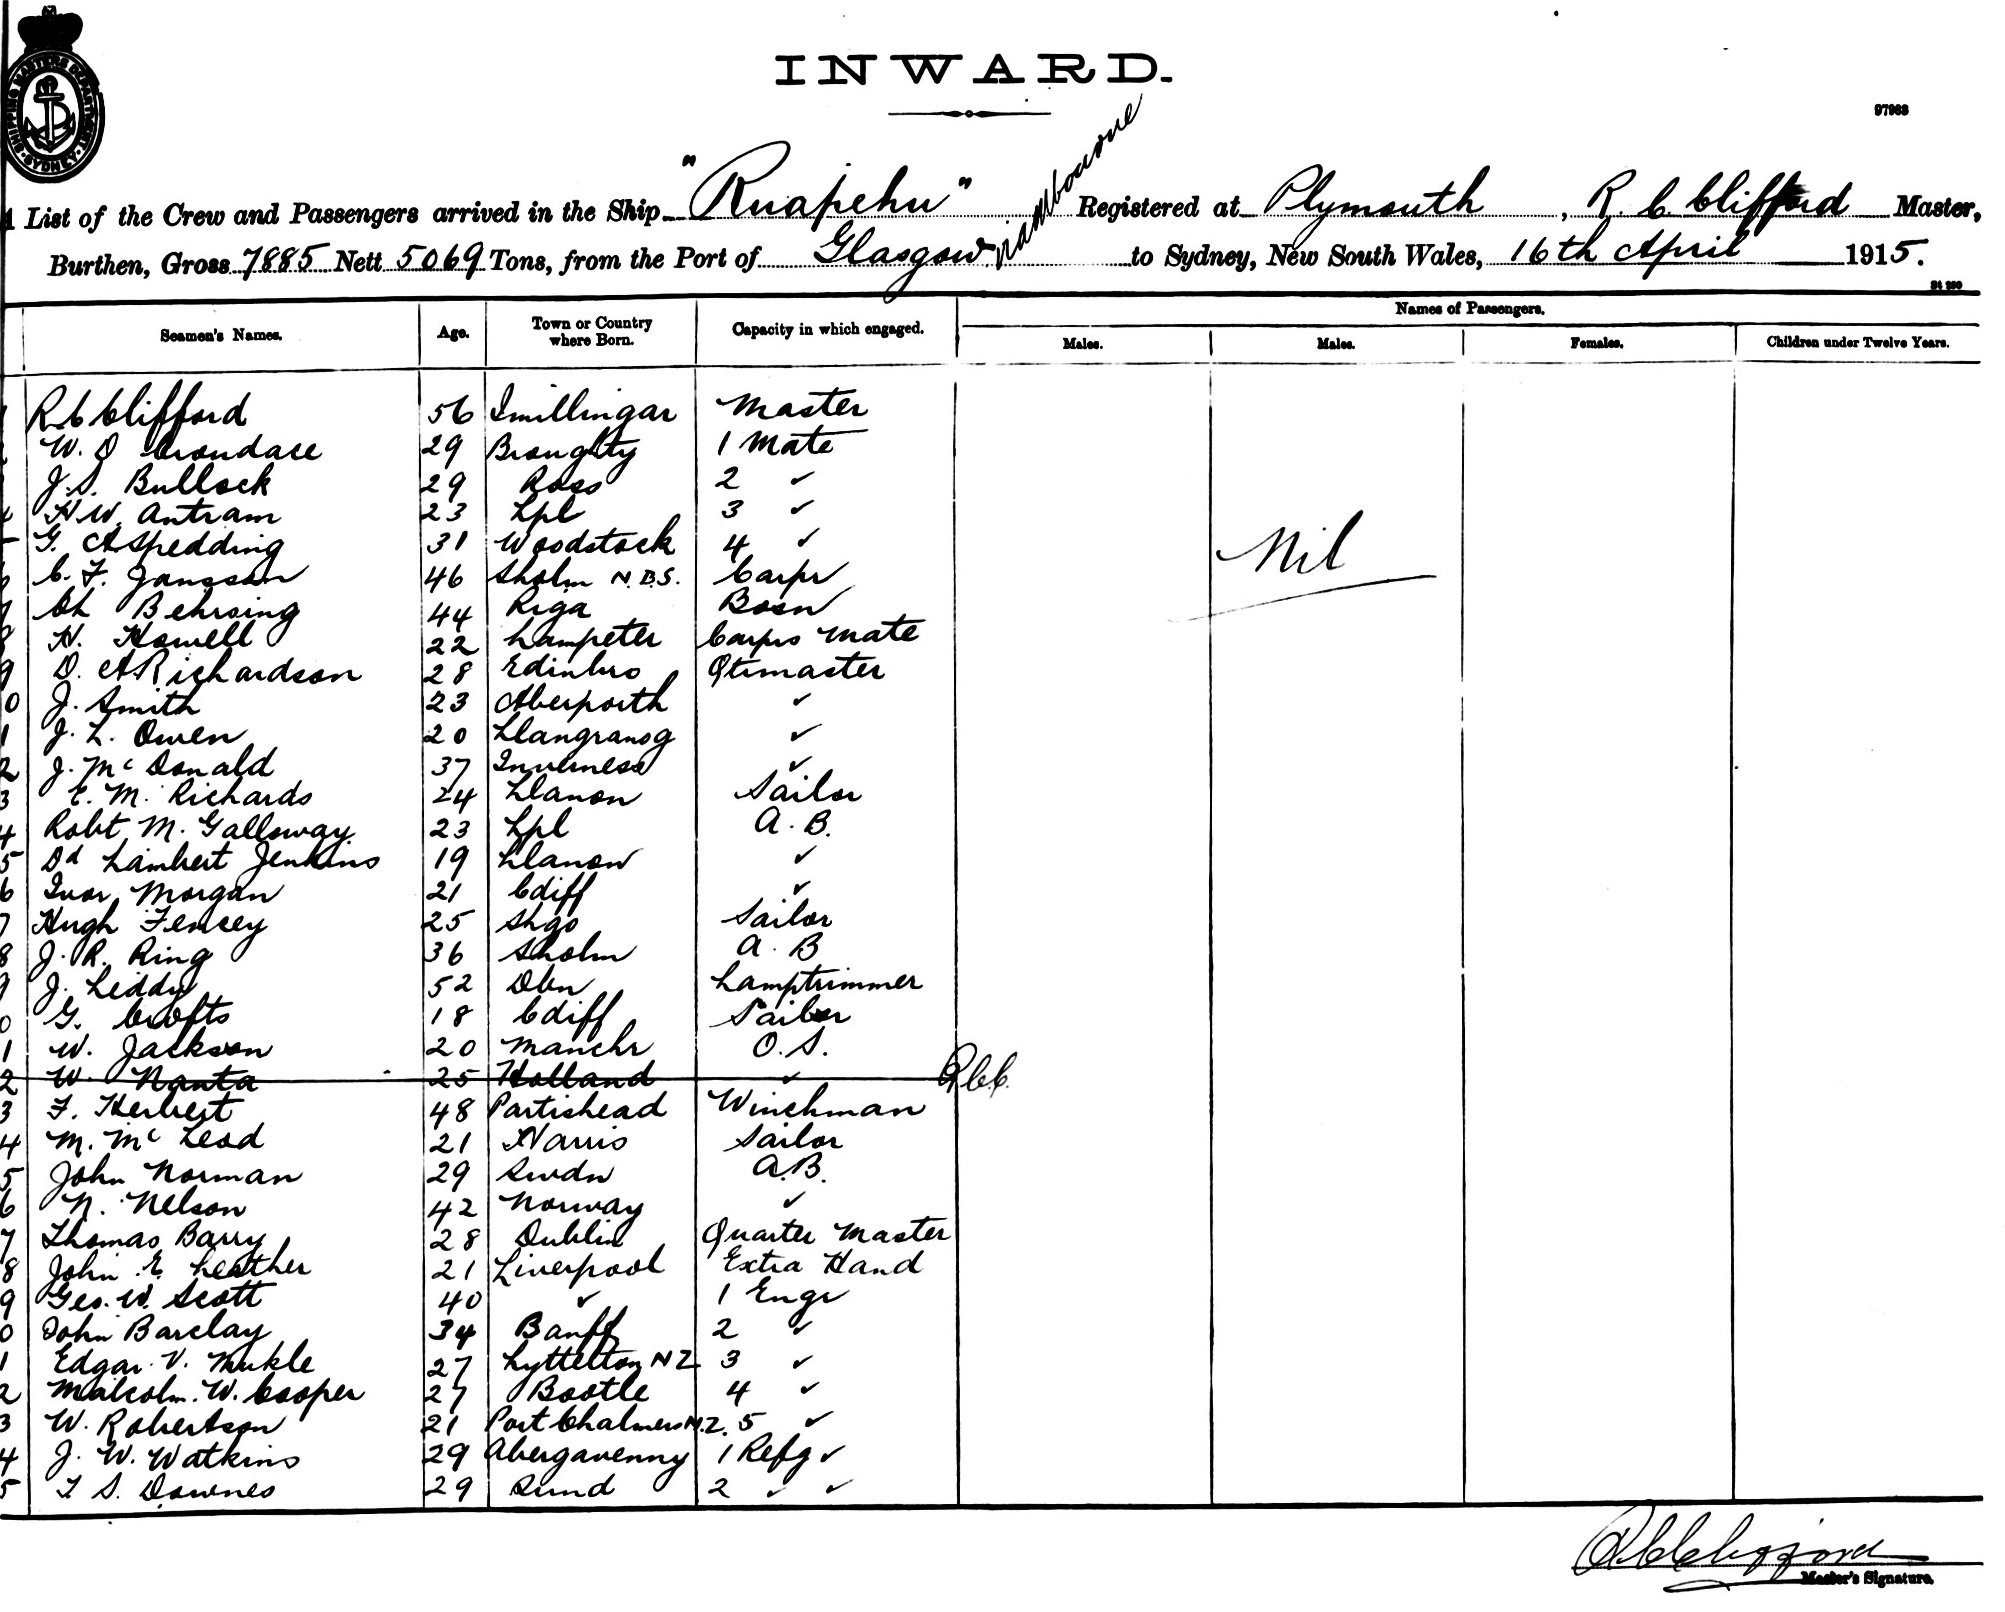 SHIPPING MASTERS DEPARTMENT SYDNEY
INWARD.
97963
via Melbourne
A List of the Crew and Passengers arrived in the Ship "Ruapehu" Registered at Plymouth, R. C. Clifford Master,
Burthen, Gross 7885 Nett 5069 Tons, from the Port of Glasgow to Sydney, New South Wales, 16th April 1915.
Names of Passengers.
Seamen's Names. Age. Town or Country where Born. Capacity in which engaged. Males. Males. Females. Children under Twelve Years.
R C Clifford 56 Master
W. O 29 Broughty 1 Mate
J. S. Bullock 29 Ross 2 ✓
4 H W. Antram 23 Lpl 3 ✓
G. A Spedding 31 Woodstock 4 ✓
Nil
C. F. Jansson 46 Sholm N.B.S. Carpr
7 Ch Behrsing 44 Riga Bosn
8 H. Howell 22 Lampeter Carprs Mate
9 D. A Richardson 28 Edinbro Qtrmaster
0 J. Smith 23 Aberporth ✓
1 J. L. Owen 20 Llangranog ✓
2 J. McDonald 37 Inverness ✓
3 E. M. Richards 24 Llanon Sailor
4 Robt M. Galloway 23 Lpl A. B.
5 Dd Lambert Jenkins 19 Llanon ✓
6 Ivor Morgan 21 Cdiff ✓
7 Hugh 25 Sailor
8 J. R. Ring 36 Sholm A. B
9 J. Liddy 52 Dbn Lamptrimmer
0 G. Crofts 18 Cdiff Sailor
1 W. Jackson 20 Manchr O. S.
2 W. Nanta 25 Holland ✓ R.C.C.
3 F. Herbert 48 Portishead Winchman
4 M. McLeod 21 Harris Sailor
5 John Norman 29 Swdn A.B.
6 N. Nelson 42 Norway ✓
7 Thomas Barry 28 Dublin Quarter Master
8 John E. Leather 21 Liverpool Extra Hand
9 Geo. W. Scott 40 ✓ 1 Engr
0 John Barclay 34 Banff 2 ✓
1 Edgar V. 27 Lyttelton NZ 3 ✓
2 Malcolm. W. Cooper 27 Bootle 4 ✓
3 W. Robertson 21 Port Chalmers N.Z. 5 ✓
4 J. W. Watkins 29 Abergavenny 1 Refg ✓
5 T S. Downes 29 Sund 2 ✓ ✓
R C Clifford
Master's Signature.